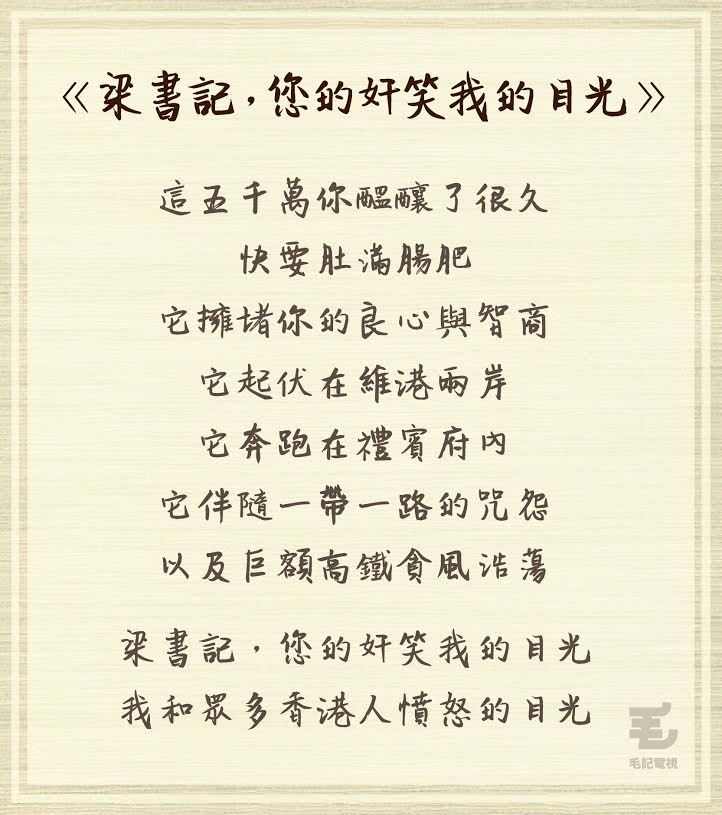 《梁書記，您的奸笑我的目光》
這五千萬你醞釀了很久
快要肚滿腸肥
它擁堵你的良心與智商
它起伏在維港兩岸
它奔跑在禮賓府內
它伴隨一帶一路的咒怨
以及巨額高鐵貪風浩蕩
梁書記，您的奸笑我的目光
我和眾多香港人憤怒的目光
毛
毛記電視